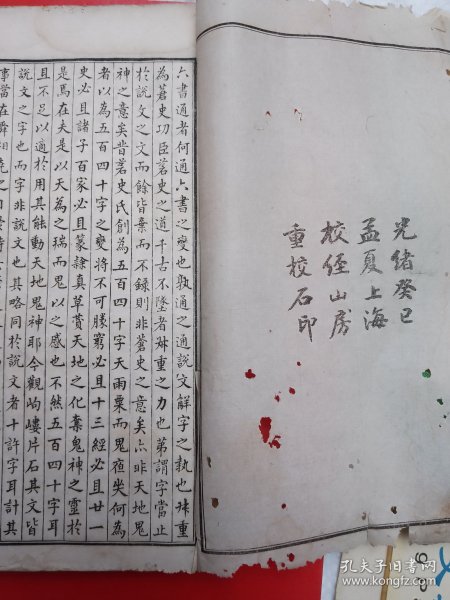 光緒癸巳
孟夏上海
校經山房
重校石印
六書通者何通六書之變也孰通之通說文解字之孰也
為蒼吏功臣蒼史之道千古不墜者叔重之力也弟謂字當止
於說文之文而餘皆棄而不錄則非蒼史之意矣亦非天地鬼
神之意矣昔蒼史氏創為五百四十字天雨粟而鬼夜哭何為
者以為五百四十字之變將不可勝窮必且十三經必且廿一
史必且諸子百家必且篆隸真草賁天地之化橐鬼神之靈於
是焉在夫是以天為之瑞而鬼以之感也不然五百四十字耳
且不足以適於用其能動天地鬼神耶今觀岣嶁片石其文皆
說文之字也而字非說文也其略同於說文者十許字耳計其
事當在舜
孔夫子旧书网
www.kongfz.com